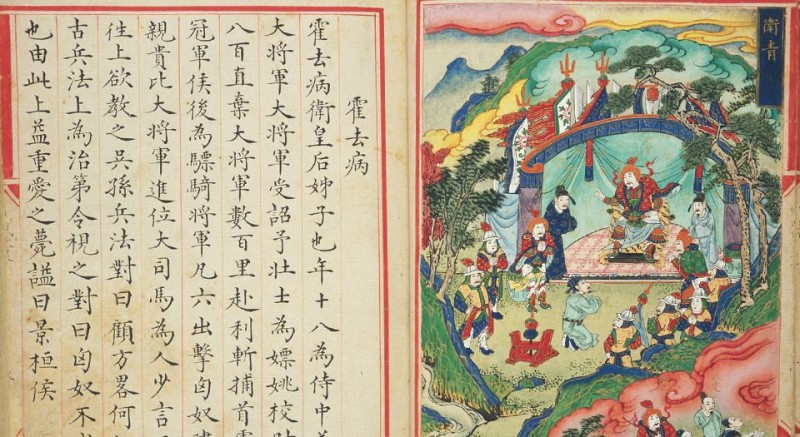 衛青
霍去病
霍去病衛皇后姊子也年十八為侍中
大將軍大將軍受詔予壯士為嫖姚校
八百直棄大將軍數百里赴利斬捕首
冠軍侯後為驃騎將軍凡六出擊匈奴
親貴比大將軍進位大司馬為人少言
徃上欲教之吳孫兵法對曰顧方畧何
古兵法上為治第令視之對曰匈奴不
也由此上益重愛之薨謚曰景桓侯